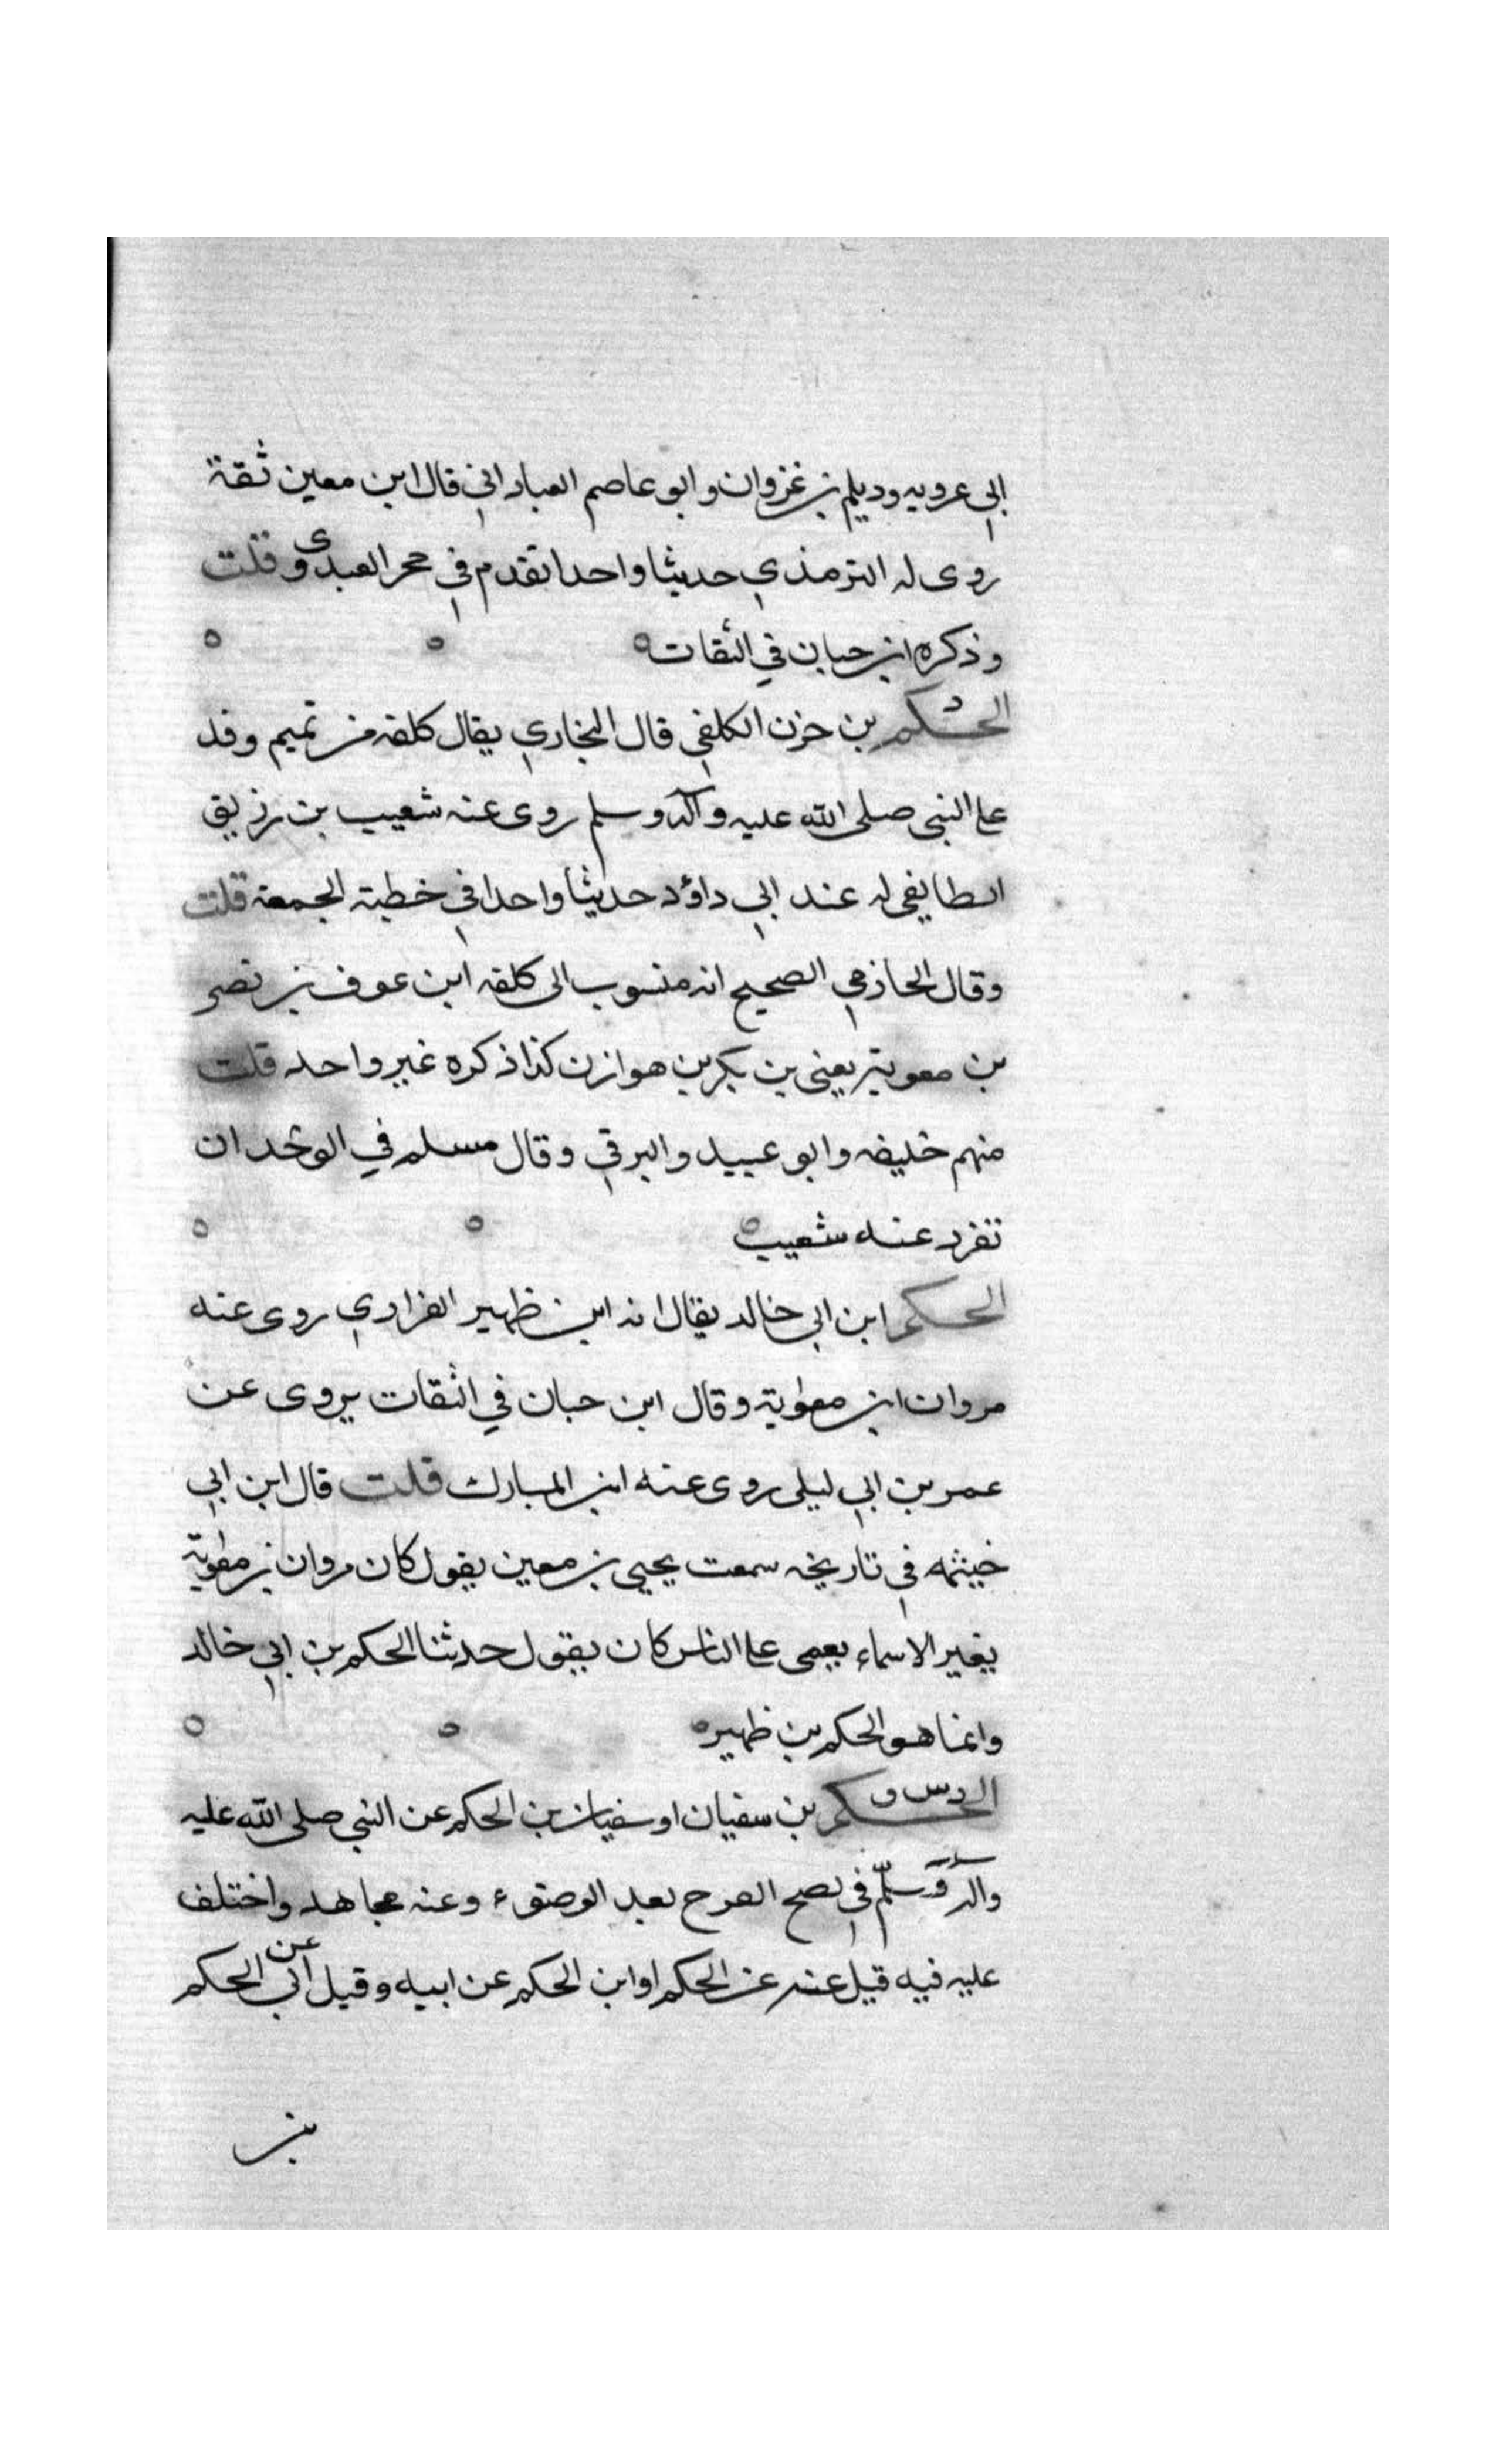 ابي عروبه وديلم بن غزوان وابو عاصم العباداني قال ابن معين ثقة
روى له الترمذي حديثا واحدا تقدم في حجر العبدى وقلت
وذكره ابن حبان في الثقات ه ه ه
الحكم بن حزن الكلفي قال البخاري يقال كلفه من تميم وفد
على النبي صلى الله عليه وآله وسلم روى عنه شعيب بن رزيق
الطايفي له عند ابي داؤد حديثا واحدا في خطبة الجمعة قلت
وقال الحازمي الصحيح انه منسوب الى كلفه ابن عوف بن نصر
بن معوية يعنى بن بكر بن هوازن كذا ذكره غير واحد قلت
منهم خليفه وابو عبيد والبرقي وقال مسلم في الوحدان
تفرد عنه شعيب ه ه ه
الحكم ابن ابي خالد يقال انه ابن ظهير الفزاري روى عنه
مروان ابن معوية وقال ابن حبان في الثقات يروى عن
عمر بن ابي ليلى روى عنه ابن المبارك قلت قال ابن ابي
خيثمه في تاريخه سمعت يحيى بن معين يقول كان مروان بن معوية
يغير الاسماء يعمى على الناس كان يقول حدثنا الحكم بن ابي خالد
وانما هو الحكم بن ظهير ه ه ه
الحكم د س و بن سفيان او سفيان بن الحكم عن النبي صلى الله عليه
وآله وسلم في نصح الفرج بعد الوضوء وعنه مجاهد واختلف
عليه فيه قيل عنه عن الحكم او ابن الحكم عن ابيه وقيل عن ابي الحكم
بن